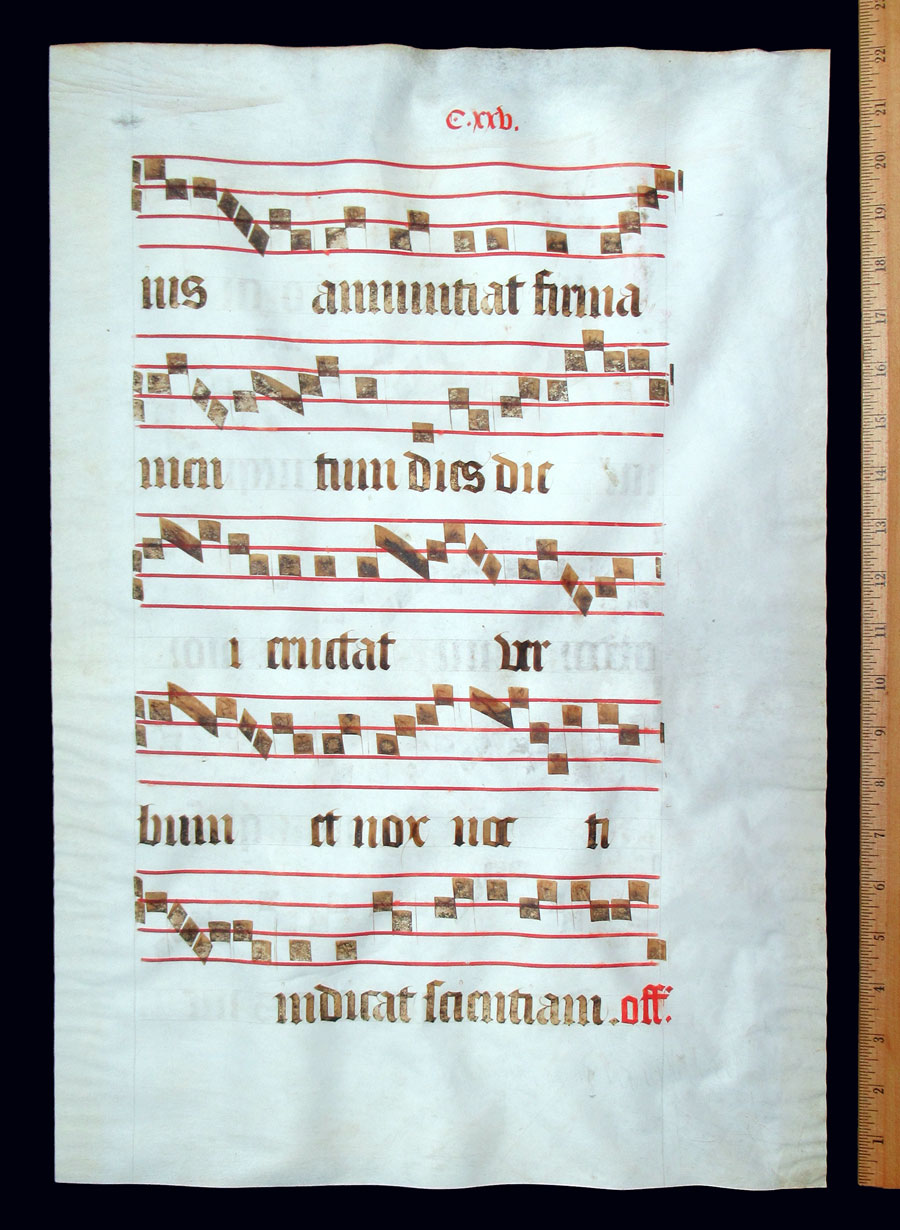 C.xxv.
ius annuntiat firma
men tum dies die
i eructat ver
bum et nox noc ti
indicat scientiam. off:
22
21
20
19
18
17
16
15
14
13
12
11
10
9
8
7
6
5
4
3
2
1